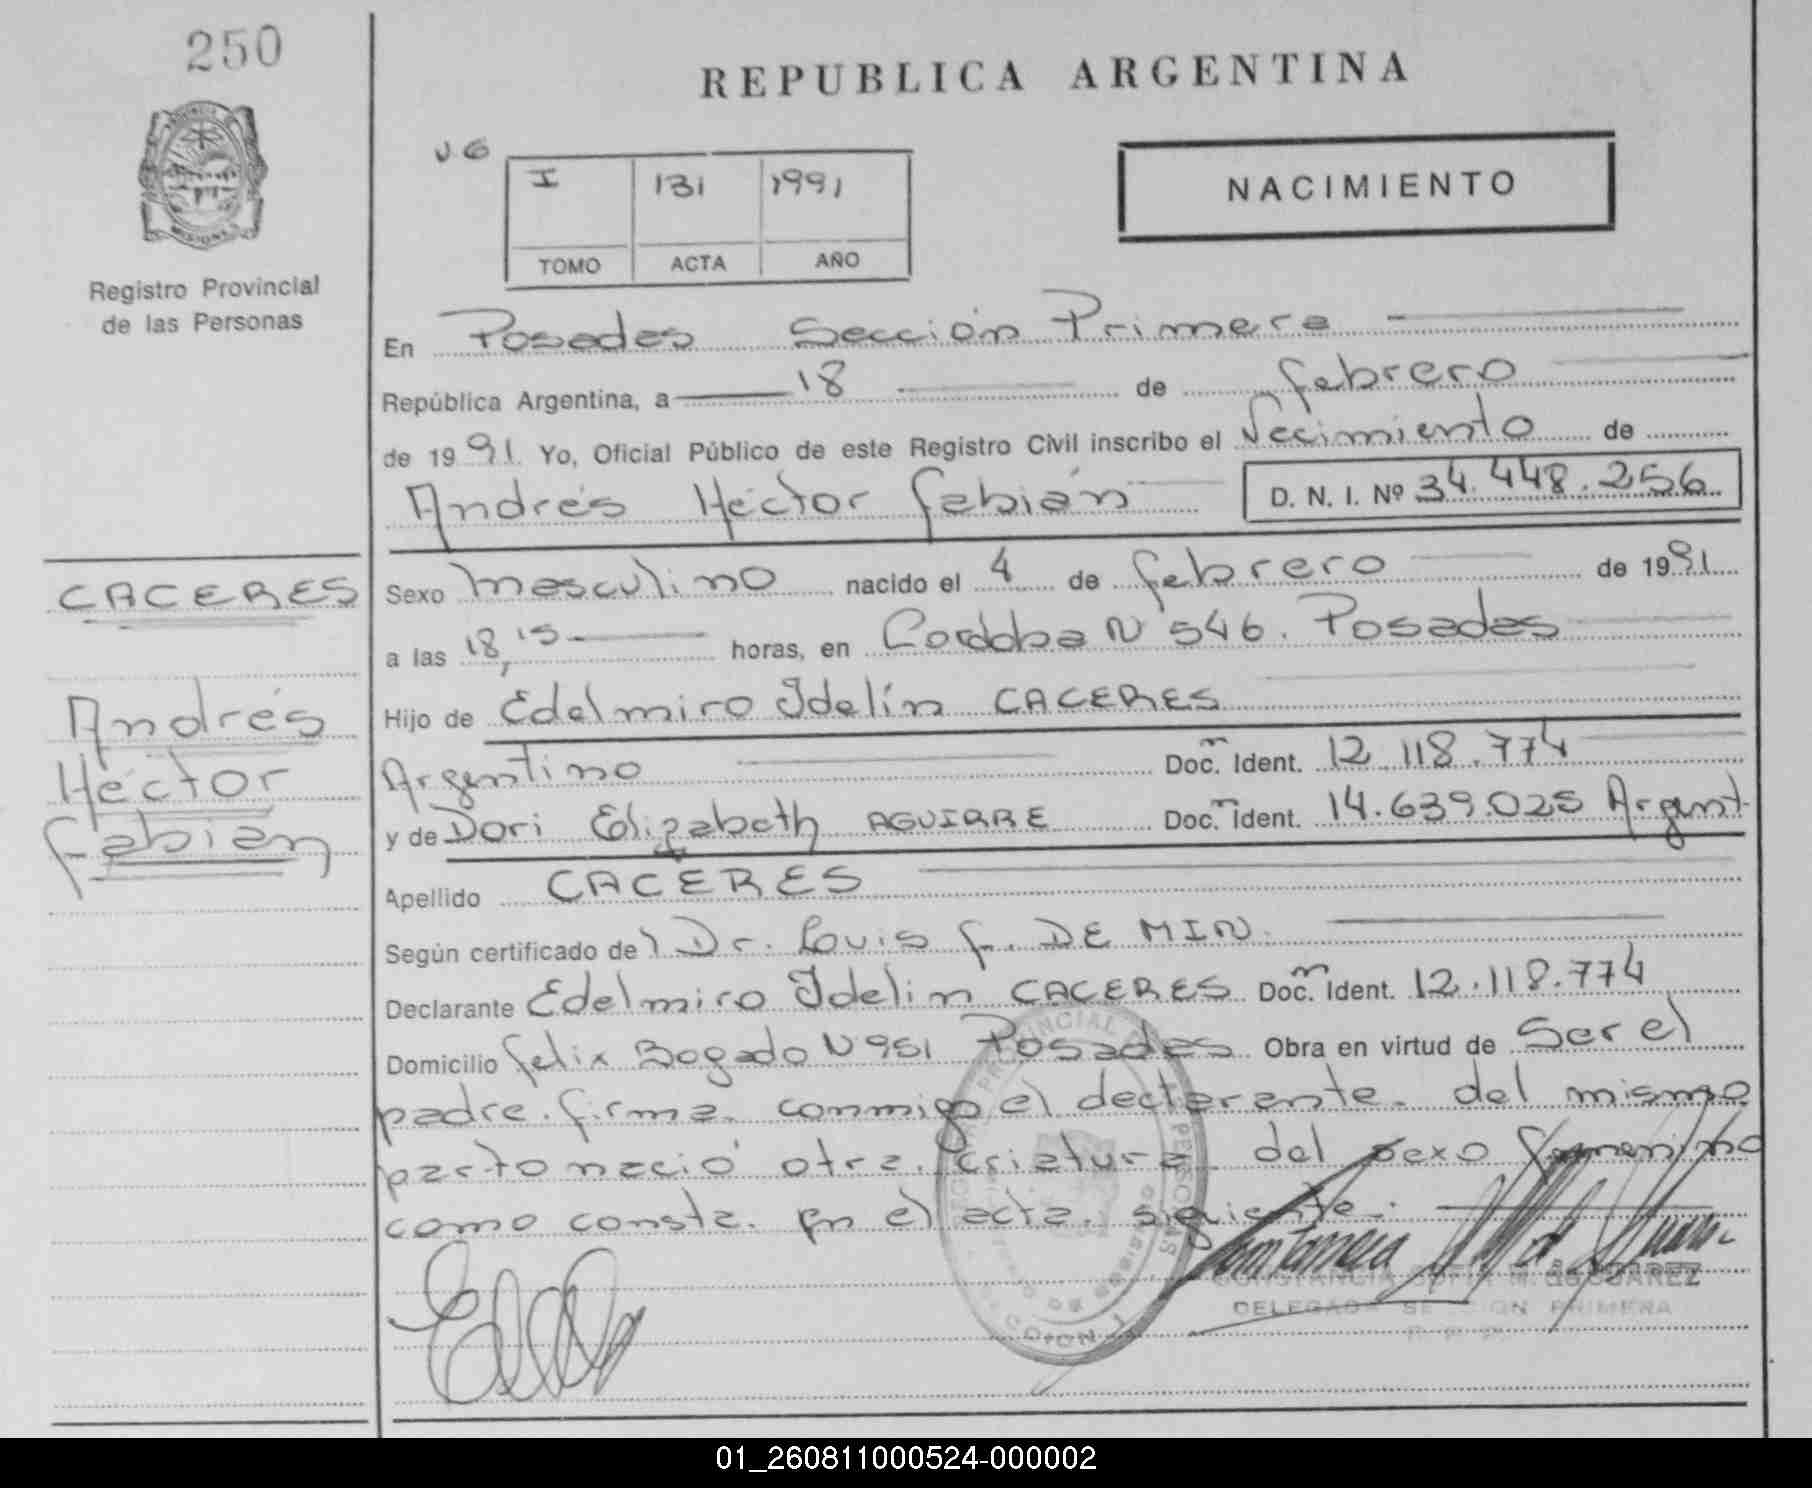 250
REPUBLICA ARGENTINA
V.G
I 131 1991
TOMO ACTA AÑO
NACIMIENTO
MISIONES
Registro Provincial
de las Personas
En Posadas Sección Primera
República Argentina, a 18 de febrero
de 1991 Yo, Oficial Público de este Registro Civil inscribo el Nacimiento de
Andrés Héctor Fabián D. N. I. Nº 34.448.256
CACERES
Andrés
Héctor
Fabián
Sexo masculino nacido el 4 de febrero de 1991
a las 18,15 horas, en Cordoba N 546. Posadas
Hijo de Edelmiro Idelín CACERES
Argentino Doc. Ident. 12.118.774
y de Dori Elizabeth AGUIRRE Doc. Ident. 14.639.025 Argent.
Apellido CACERES
Según certificado del Dr. Louis F. DE MIN.
Declarante Edelmiro Idelin CACERES Doc. Ident. 12.118.774
Domicilio Felix Bogado N 951 Posadas Obra en virtud de Ser el
padre. firma. conmigo el declarante. del mismo
parto nació otra. criatura del sexo femenino
como consta. en el acta. siguiente.
CONSTANCIA SOFIA M. DE SUAREZ
DELEGADA SECCION PRIMERA
01_260811000524-000002